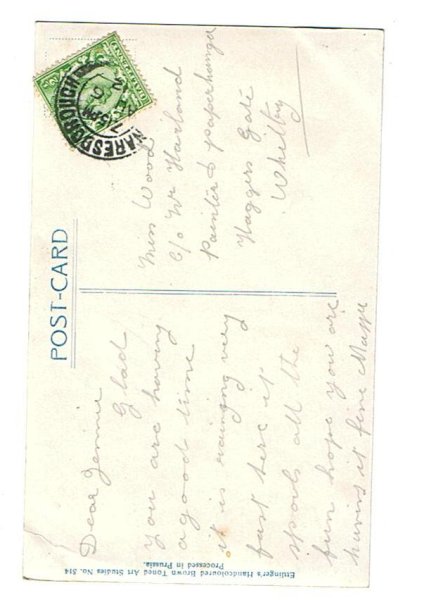 POST-CARD
Dear Jennie
Glad
you are having
a good time
it is raining very
fast here it
spoils all the
fun hope you are
having it fine Maggie
Miss Wood
C/o Mr Harland
Painter & paperhanger
Haggers Gate
Whitby
KNARESBOROUGH
7.15PM
Ettlinger's Handcoloured Brown Toned Art Studies No. 514
Processed in Prussia.